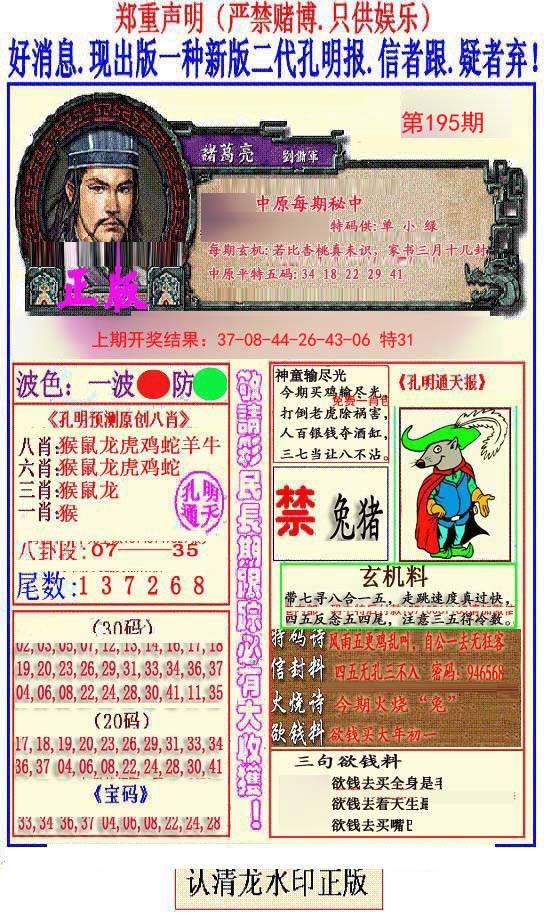 郑重声明（严禁赌博.只供娱乐）
好消息.现出版一种新版二代孔明报.信者跟.疑者弃!
第195期
諸葛亮 劉備軍
中原每期秘中
特码供:单 小 绿
每期玄机:若比杏桃真未识，家书三月十几封
中原平特五码:34 18 22 29 41
正版
上期开奖结果：37-08-44-26-43-06 特31
波色：一波 防
《孔明预测原创八肖》
八肖:猴鼠龙虎鸡蛇羊牛
六肖:猴鼠龙虎鸡蛇
三肖:猴鼠龙
一肖:猴
孔明
通天
八卦段:07——35
尾数:137268
(30码)
02,03,05,07,12,13,14,16,17,18
19,20,23,26,29,31,33,34,36,37
04,06,08,22,24,28,30,41,11,35
(20码)
17,18,19,20,23,26,29,31,33,34
36,37,04,06,08,22,24,28,30,41
《宝码》
33,34,36,37,04,06,08,22,24,28
敬請彩民長期跟踪必有大收獲！
神童输尽光
今期买鸡输尽光，
打倒老虎除祸害，
人百银钱夺酒缸，
三七当让八不沾。
《孔明通天报》
禁 兔猪
玄机料
带七寻八合一五，走跳速度真过快，
四五反悫五四尾，注意三五得冷数。
特码诗 风雨五更鸡乱叫，自公一去无狂客
信封料 四五无孔三不入 密码：946568
火烧诗 今期火烧“兔”
欲钱料 欲钱买大年初一
三句欲钱料
欲钱去买全身是
欲钱去看天生
欲钱去买嘴
认清龙水印正版